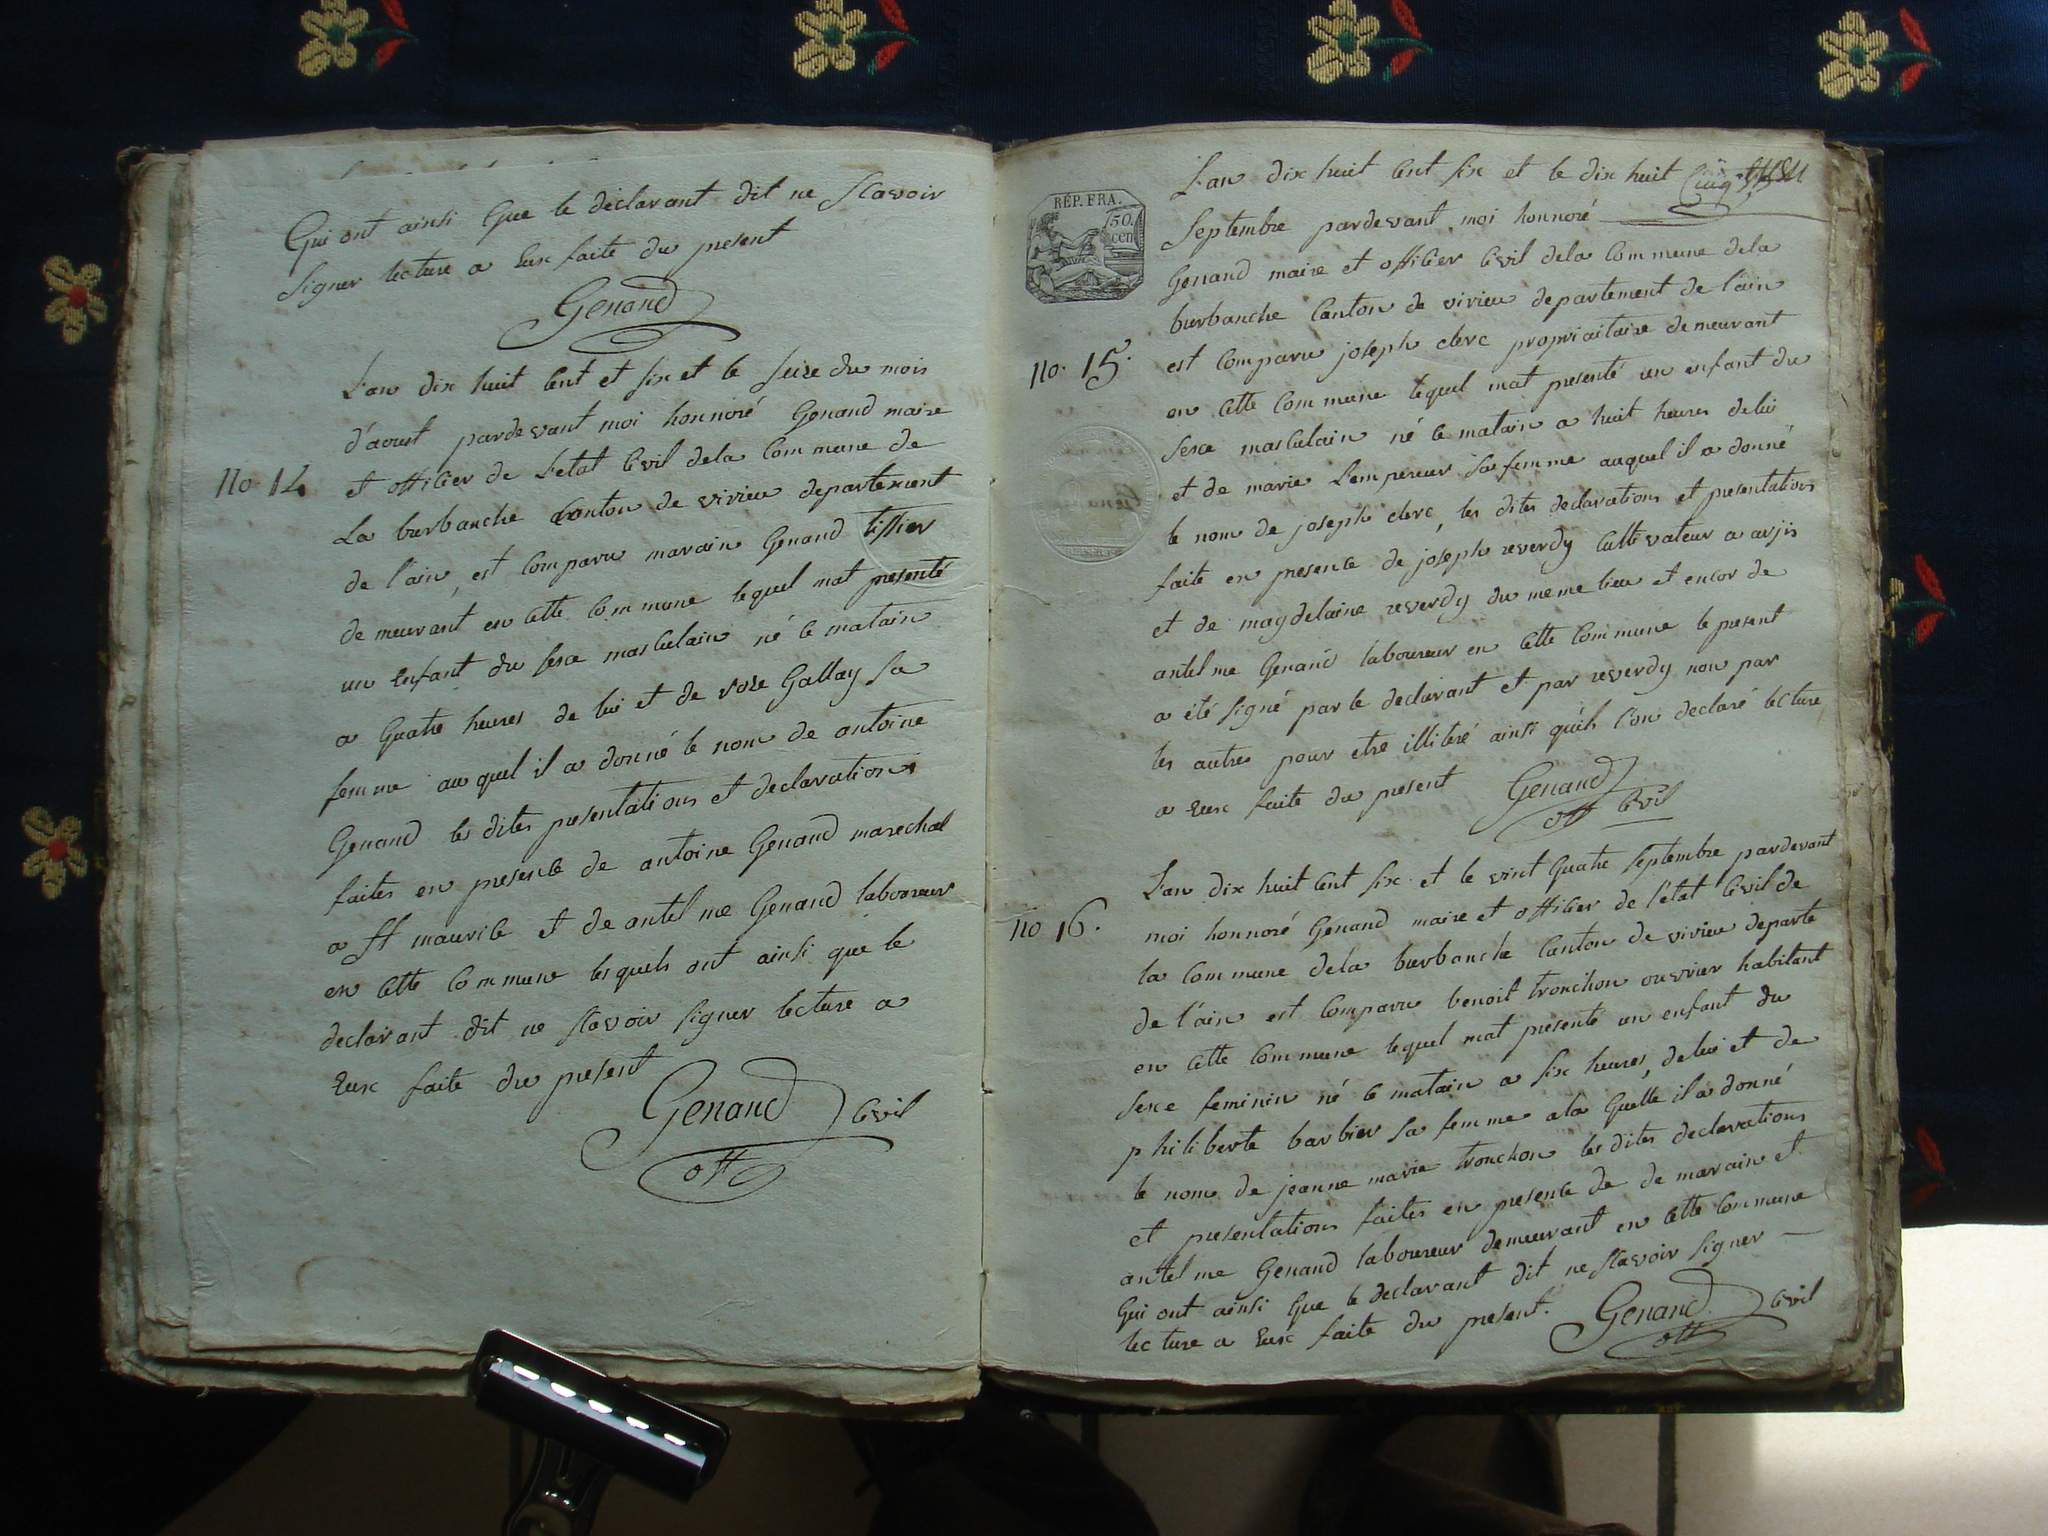 Qui ont ainsi que le declarant dit ne scavoir
signer lecture a Eux faite du present
Genand
L'an dix huit cent et six et le seize du mois
d'aoust pardevant moi honnoré Genand maire
no 14 et officier de L'etat Civil dela Commune de
La burbanche Canton de virieu departement
de l'ain, est Comparu marain Genand tissier
demeurant en cette Commune lequel mat presenté
un Enfant du sexe masculain né ce matain
a quatre heures de lui et de rose Gallay sa
femme au quel il a donné le nom de antoine
Genand les dites presentations et declarations
faites en presence de antoine Genand marechal
a st maurice et de antelme Genand laboureur
en cette Commune lesquels ont ainsi que le
declarant dit ne scavoir signer lecture a
Eux faite du present
Genand Civil
off
L'an dix huit cent six et le dix huit Cinq
RÉP. FRA.
50.
cen
septembre pardevant moi honnoré
Genand maire et officier Civil dela Commune dela
burbanche Canton de virieu departement de l'ain
no. 15. est Comparu joseph clerc propriaitaire demeurant
en cette Commune lequel mat presenté un enfant du
sexe masculain né ce matain a huit heures delui
et de marie L'empereur sa femme auquel il a donné
le nom de joseph clerc, les dites declarations et presentations
faite en presence de joseph reverdy cultivateur a arjis
et de magdelaine reverdy du meme lieu et encor de
antelme Genand laboureur en cette Commune le present
a été signé par le declarant et par reverdy non par
les autres pour etre illiteré ainsi qu'ils l'on declaré lecture
a Eux faite du present Genand
off Civil
L'an dix huit cent six et le vint quatre septembre pardevant
no 16. moi honnoré Genand maire et officier de l'état Civil de
la Commune dela burbanche Canton de virieu departe
de l'ain est Comparu benoit tronchon ouvrier habitant
en cette Commune lequel mat presenté un enfant du
sexe feminin né ce matain a six heures, delui et de
philiberte barbier sa femme ala quelle il a donné
le nom de jeanne marie tronchon les dites declarations
et presentations faites en presence de de marain et
antelme Genand laboureur demeurant en cette Commune
Qui ont ainsi que le declarant dit ne scavoir signer
lecture a Eux faite du present. Genand Civil
off